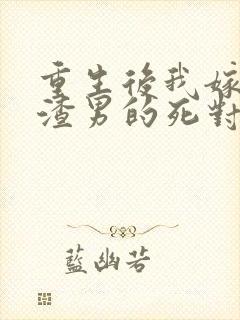 重生後我嫁
渣男的死對
藍幽若